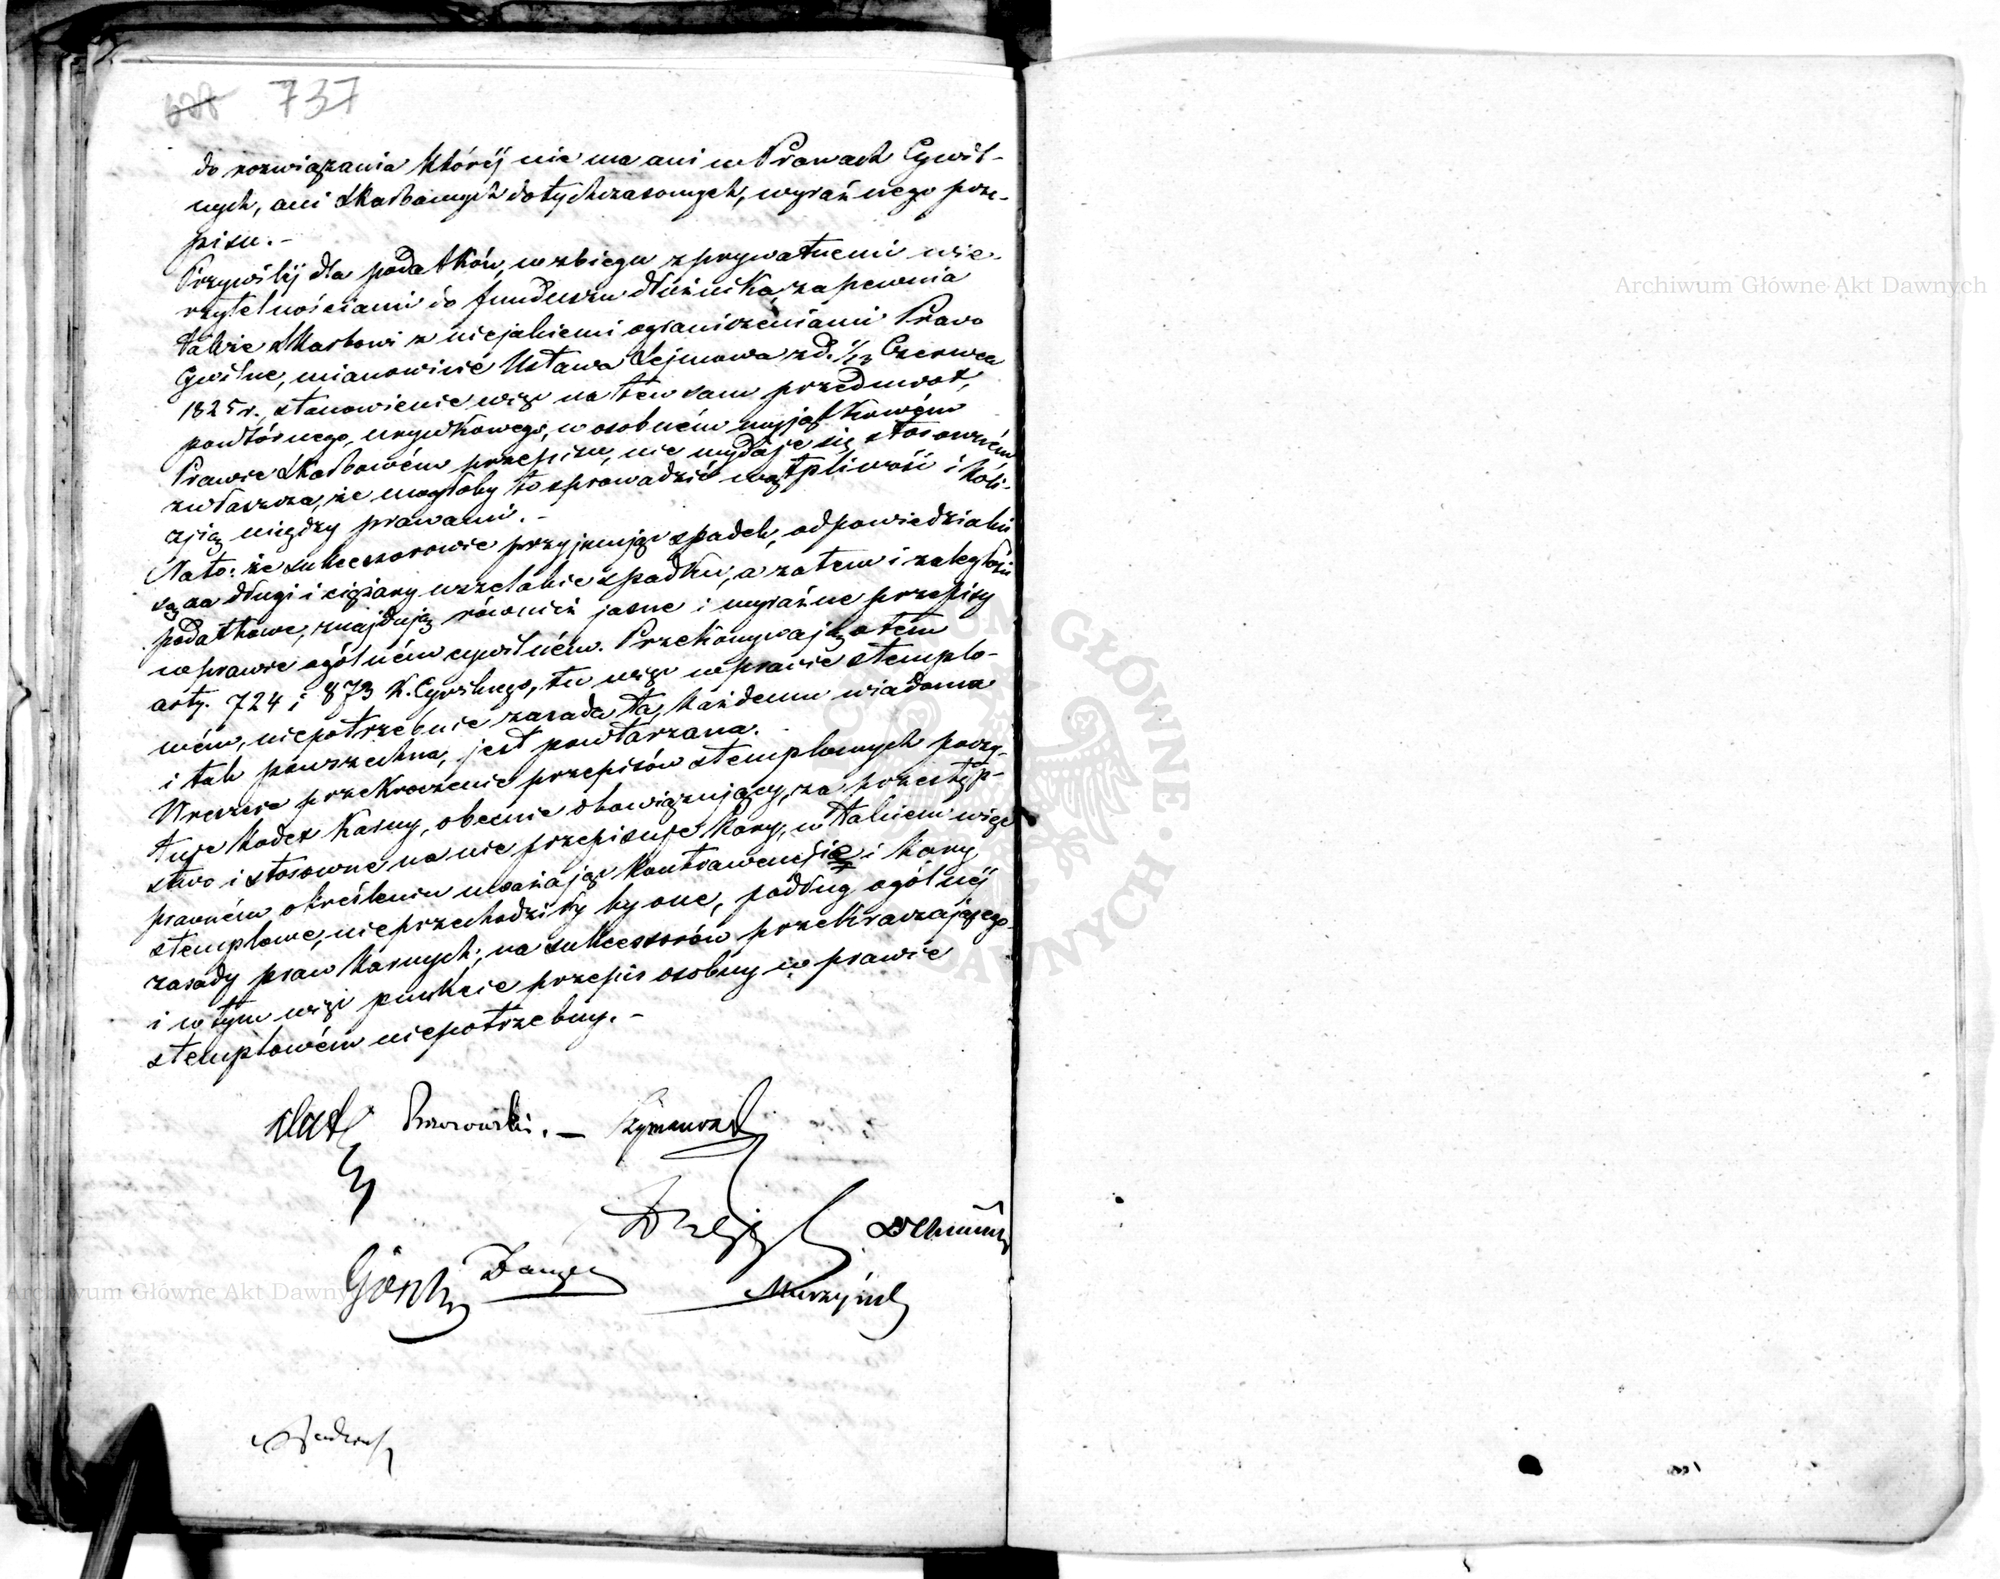 737
do rozwiązania któréj nie ma ani w Prawach Cywil-
nych, ani Skarbowych dotychczasowych, wyraźnego prze-
pisu. –
Przywiléj dla podatków, w zbiegu z prywatnemi wie-
rzytelnościami do funduszu dłużnika, zapewnia
także Skarbowi z niejakiemi ograniczeniami Prawo
Cywilne, mianowicie Ustawa Sejmowa z d. 1/13 Czerwca
1825 r., stanowienie więc na tén sam przedmiot,
powtórnego, urywkowego, w osobném wyjątkowém
Prawie Skarbowém przepisu, nie wydaje się stosowném
zwłaszcza, że mogłoby to sprowadzić wątpliwości i koli-
zją między prawami. –
Na to: że sukcessorowie przyjmując spadek, odpowiedzialni
są za długi i ciężary wszelakie spadku, a zatem i zaległości
podatkowe, znajdują również jasne i wyraźne przepisy
w prawie ogólném cywilném. Przekonywają o tem
arty. 724 i 873 K. Cywilnego, tu więc w prawie stemplo-
wém, niepotrzebnie zasada ta, każdemu wiadoma
i tak powszechna, jest powtarzana.
Wreszcie przekroczenie przepisów stemplowych poczy-
tuje Kodex Karny, obecnie obowiązujący, za przestęp-
stwo i stosowne na nie przepisuje kary, w takiem więc
prawném określeniu uważając kontrawencje i kary
stemplowe, nie przechodziłyby one, podług ogólnéj
zasady praw karnych, na sukcessorów przekraczającego
i w tym więc punkcie przepis osobny w prawie
stemplowém niepotrzebny. –
Brzozowski. – Szymanowski
Górski
Muszyński
Archiwum Główne Akt Dawnych
Archiwum Główne Akt Dawnych
ARCHIWUM GŁÓWNE AKT DAWNYCH